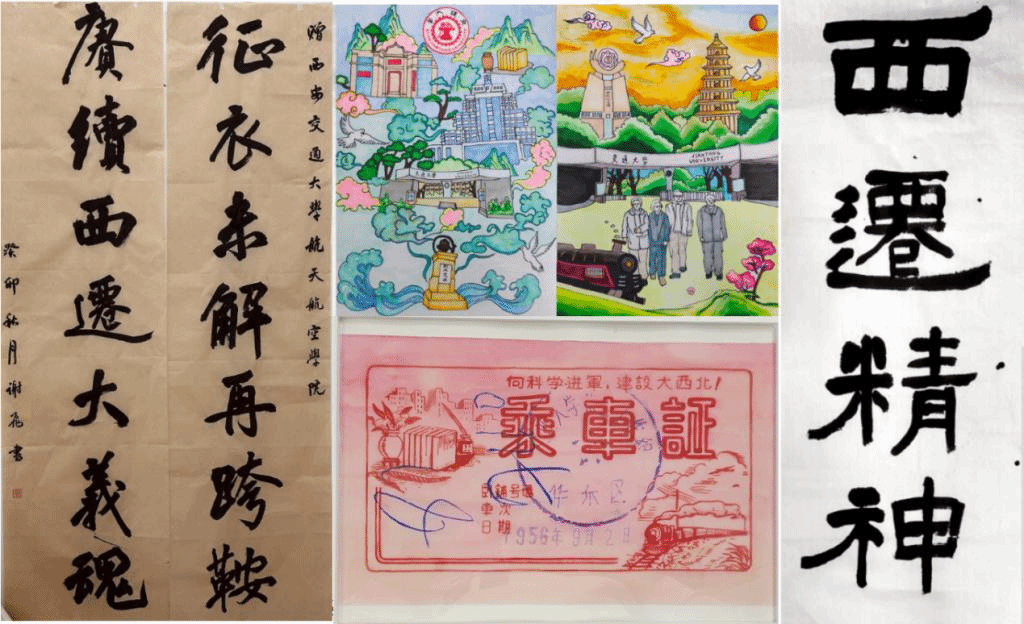 贈西安交通大學航天航空學院
征衣未解再跨鞍
賡續西遷大義魂
癸卯秋月謝飛書
交通大学
JIAOTONG
UNIVERSITY
向科学进軍,建設大西北!
乘車証
卧鋪号碼
車次
日期 1956年9月2日
西遷精神